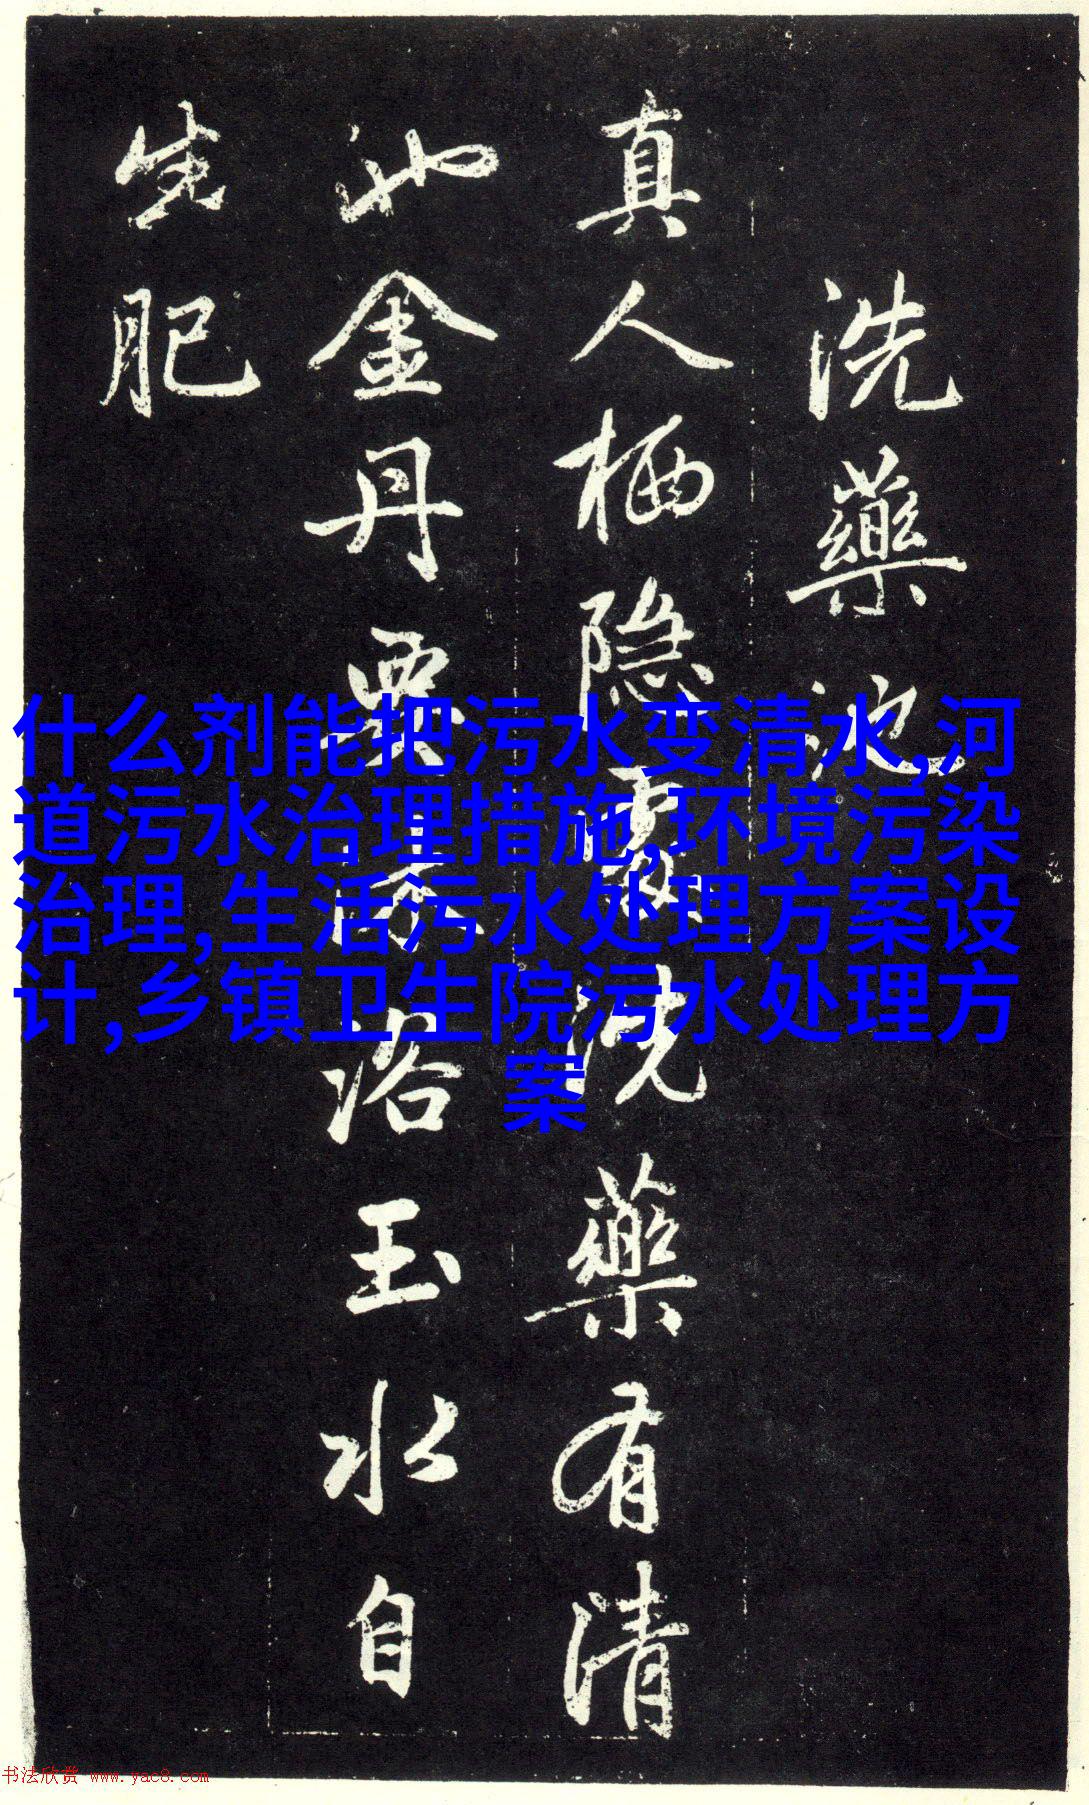 洗藥池
真人栖隐處洗藥有清
池金丹要沐浴玉水自
生肥
什么剂能把污水变清水,河
道污水治理措施,环境污染
治理,生活污水处理方案设
计,乡镇卫生院污水处理方
案
书法欣赏 www.yac8.com